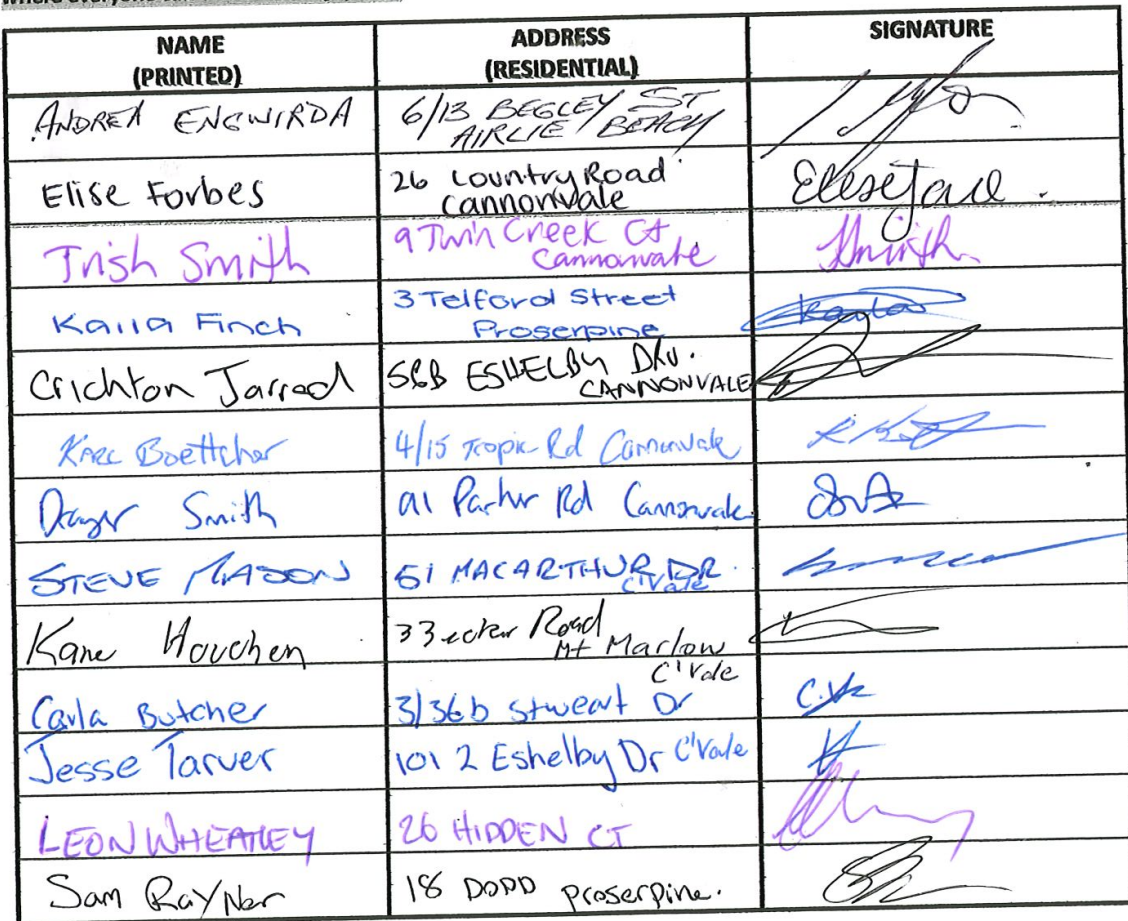 NAME
(PRINTED)
ADDRESS
(RESIDENTIAL)
SIGNATURE
ANDREA ENGWIRDA
6/13 BEGLEY ST
AIRLIE BEACH
Elise Forbes
26 Country Road
Cannonvale
Trish Smith
9 Twin Creek Ct
Cannonvale
Kaila Finch
3 Telford Street
Proserpine
Kayla
Crichton Jarred
ESHELBY DRV.
CANNONVALE
Karl Boettcher
4/15 Tropic Rd Cannonvale
Smith
Parker Rd Cannonvale
STEVE MASON
51 MACARTHUR DR.
C'Vale
Kane Houchen
Road
Mt Marlow
C'Vale
Carla Butcher
3/36b Stweart Dr
Jesse Tarver
101 2 Eshelby Dr C'Vale
LEON WHEATLEY
26 HIDDEN CT
Sam Rayner
18 DODD Proserpine.